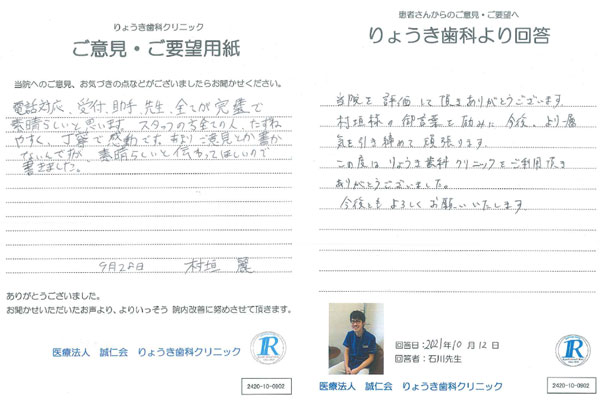 りょうき歯科クリニック
ご意見・ご要望用紙
当院へのご意見、お気づきの点などがございましたらお聞かせください。
電話対応、受付、助手、先生、全てが完璧で
素晴らしいと思います。スタッフの方全ての人、たずね
やすく、丁寧で感動です。あまりご意見とか書か
ないんですが、素晴らしいと伝わってほしいので
書きました。
9月22日 村垣 麗
ありがとうございました。
お聞かせいただいたお声より、よりいっそう 院内改善に努めさせて頂きます。
医療法人 誠仁会 りょうき歯科クリニック
2420-10-0902
患者さんからのご意見・ご要望へ
りょうき歯科より回答
当院を評価して頂きありがとうございます。
村垣様の御言葉を励みに今後、より一層
気を引き締めて頑張ります。
この度はりょうき歯科クリニックをご利用頂き
ありがとうございました。
今後ともよろしくお願いいたします。
回答日:2021年10月12日
回答者:石川先生
医療法人 誠仁会 りょうき歯科クリニック
2420-10-0902